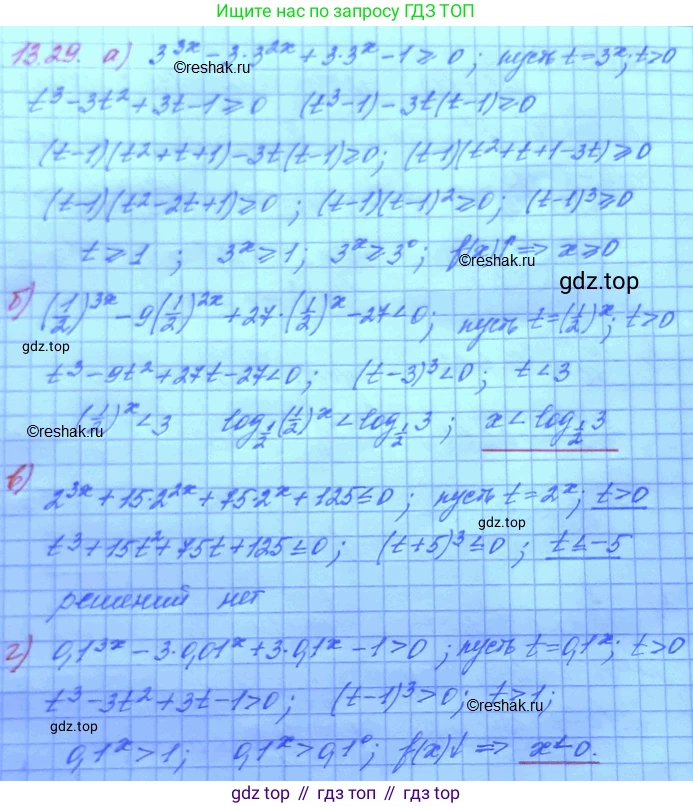 Ищите нас по запросу ГДЗ ТОП
13.29. а) 3^{3x} - 3·3^{2x} + 3·3^x - 1 ≥ 0; пусть t = 3^x; t > 0
©reshak.ru
t³ - 3t² + 3t - 1 ≥ 0 (t³ - 1) - 3t(t - 1) ≥ 0
(t - 1)(t² + t + 1) - 3t(t - 1) ≥ 0; (t - 1)(t² + t + 1 - 3t) ≥ 0
(t - 1)(t² - 2t + 1) ≥ 0; (t - 1)(t - 1)² ≥ 0; (t - 1)³ ≥ 0
t ≥ 1; 3^x ≥ 1; 3^x ≥ 3⁰; f(x)↑ ⇒ x ≥ 0
©reshak.ru
gdz.top
б) (1/2)^{3x} - 9(1/2)^{2x} + 27·(1/2)^x - 27 < 0; пусть t = (1/2)^x; t > 0
gdz.top
t³ - 9t² + 27t - 27 < 0; (t - 3)³ < 0; t < 3
(1/2)^x < 3 log_{1/2}(1/2)^x < log_{1/2} 3; x < log_{1/2} 3
©reshak.ru
в) 2^{3x} + 15·2^{2x} + 75·2^x + 125 ≤ 0; пусть t = 2^x; t > 0
gdz.top
t³ + 15t² + 75t + 125 ≤ 0; (t + 5)³ ≤ 0; t ≤ -5
решений нет
г) 0,1^{3x} - 3·0,01^x + 3·0,1^x - 1 > 0; пусть t = 0,1^x; t > 0
t³ - 3t² + 3t - 1 > 0; (t - 1)³ > 0; t > 1;
©reshak.ru
gdz.top
0,1^x > 1; 0,1^x > 0,1⁰; f(x)↓ ⇒ x < 0.
gdz.top // gdz.top // gdz.top